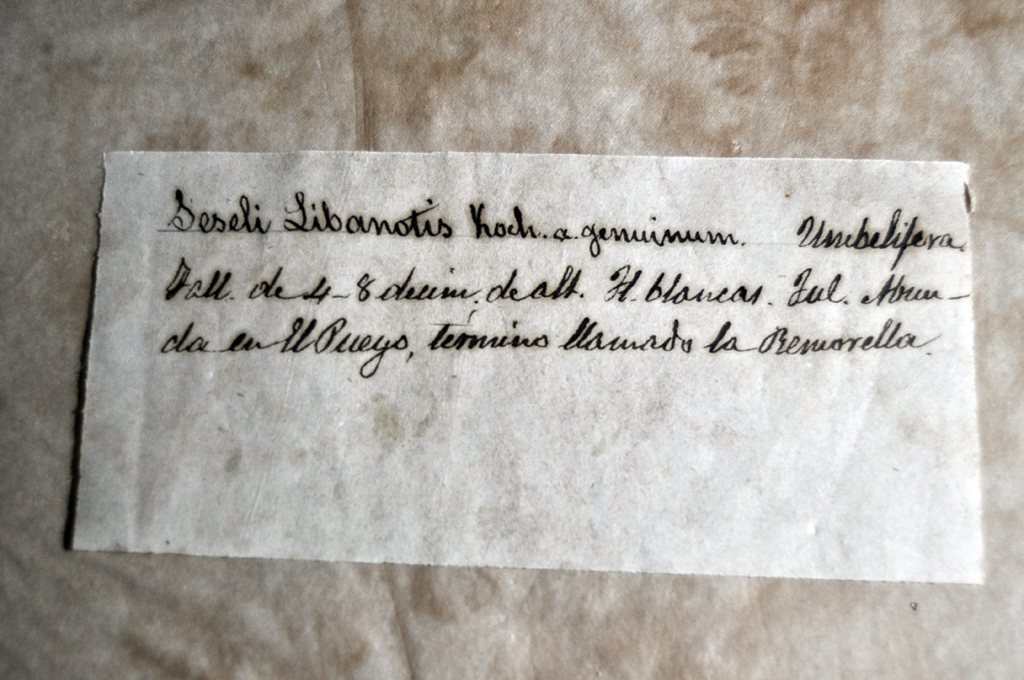 Seseli Libanotis Koch. α. genuinum. Umbelifera.
Tall. de 4-8 decim. de alt. Fl. blancas. Jul. Abun-
da en El Pueyo, término llamado la Remorella.